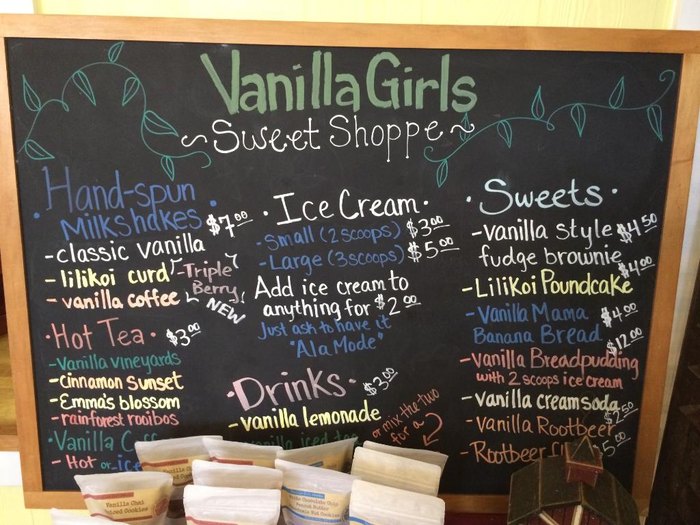 Vanilla Girls
~ Sweet Shoppe ~
· Hand-spun Milkshakes · $7.00
- classic vanilla
- lilikoi curd
- vanilla coffee
- Triple Berry
NEW
· Hot Tea · $3.00
- vanilla vineyards
- cinnamon sunset
- Emma's blossom
- rainforest rooibos
· Vanilla
- Hot or
· Ice Cream ·
- Small (2 scoops) $3.00
- Large (3 scoops) $5.00
Add ice cream to
anything for $2.00
Just ask to have it
"Ala Mode"
· Drinks · $3.00
- vanilla lemonade
- vanilla iced
or mix the two
for a
· Sweets ·
- vanilla style $4.50
fudge brownie
- Lilikoi Poundcake $4.00
- Vanilla Mama $4.00
Banana Bread
- vanilla Breadpudding $12.00
with 2 scoops ice cream
- vanilla cream soda
- vanilla Rootbeer $2.50
- Rootbeer
Vanilla Chai
Spiced Cookies
White Chocolate Chip
Peanut Butter